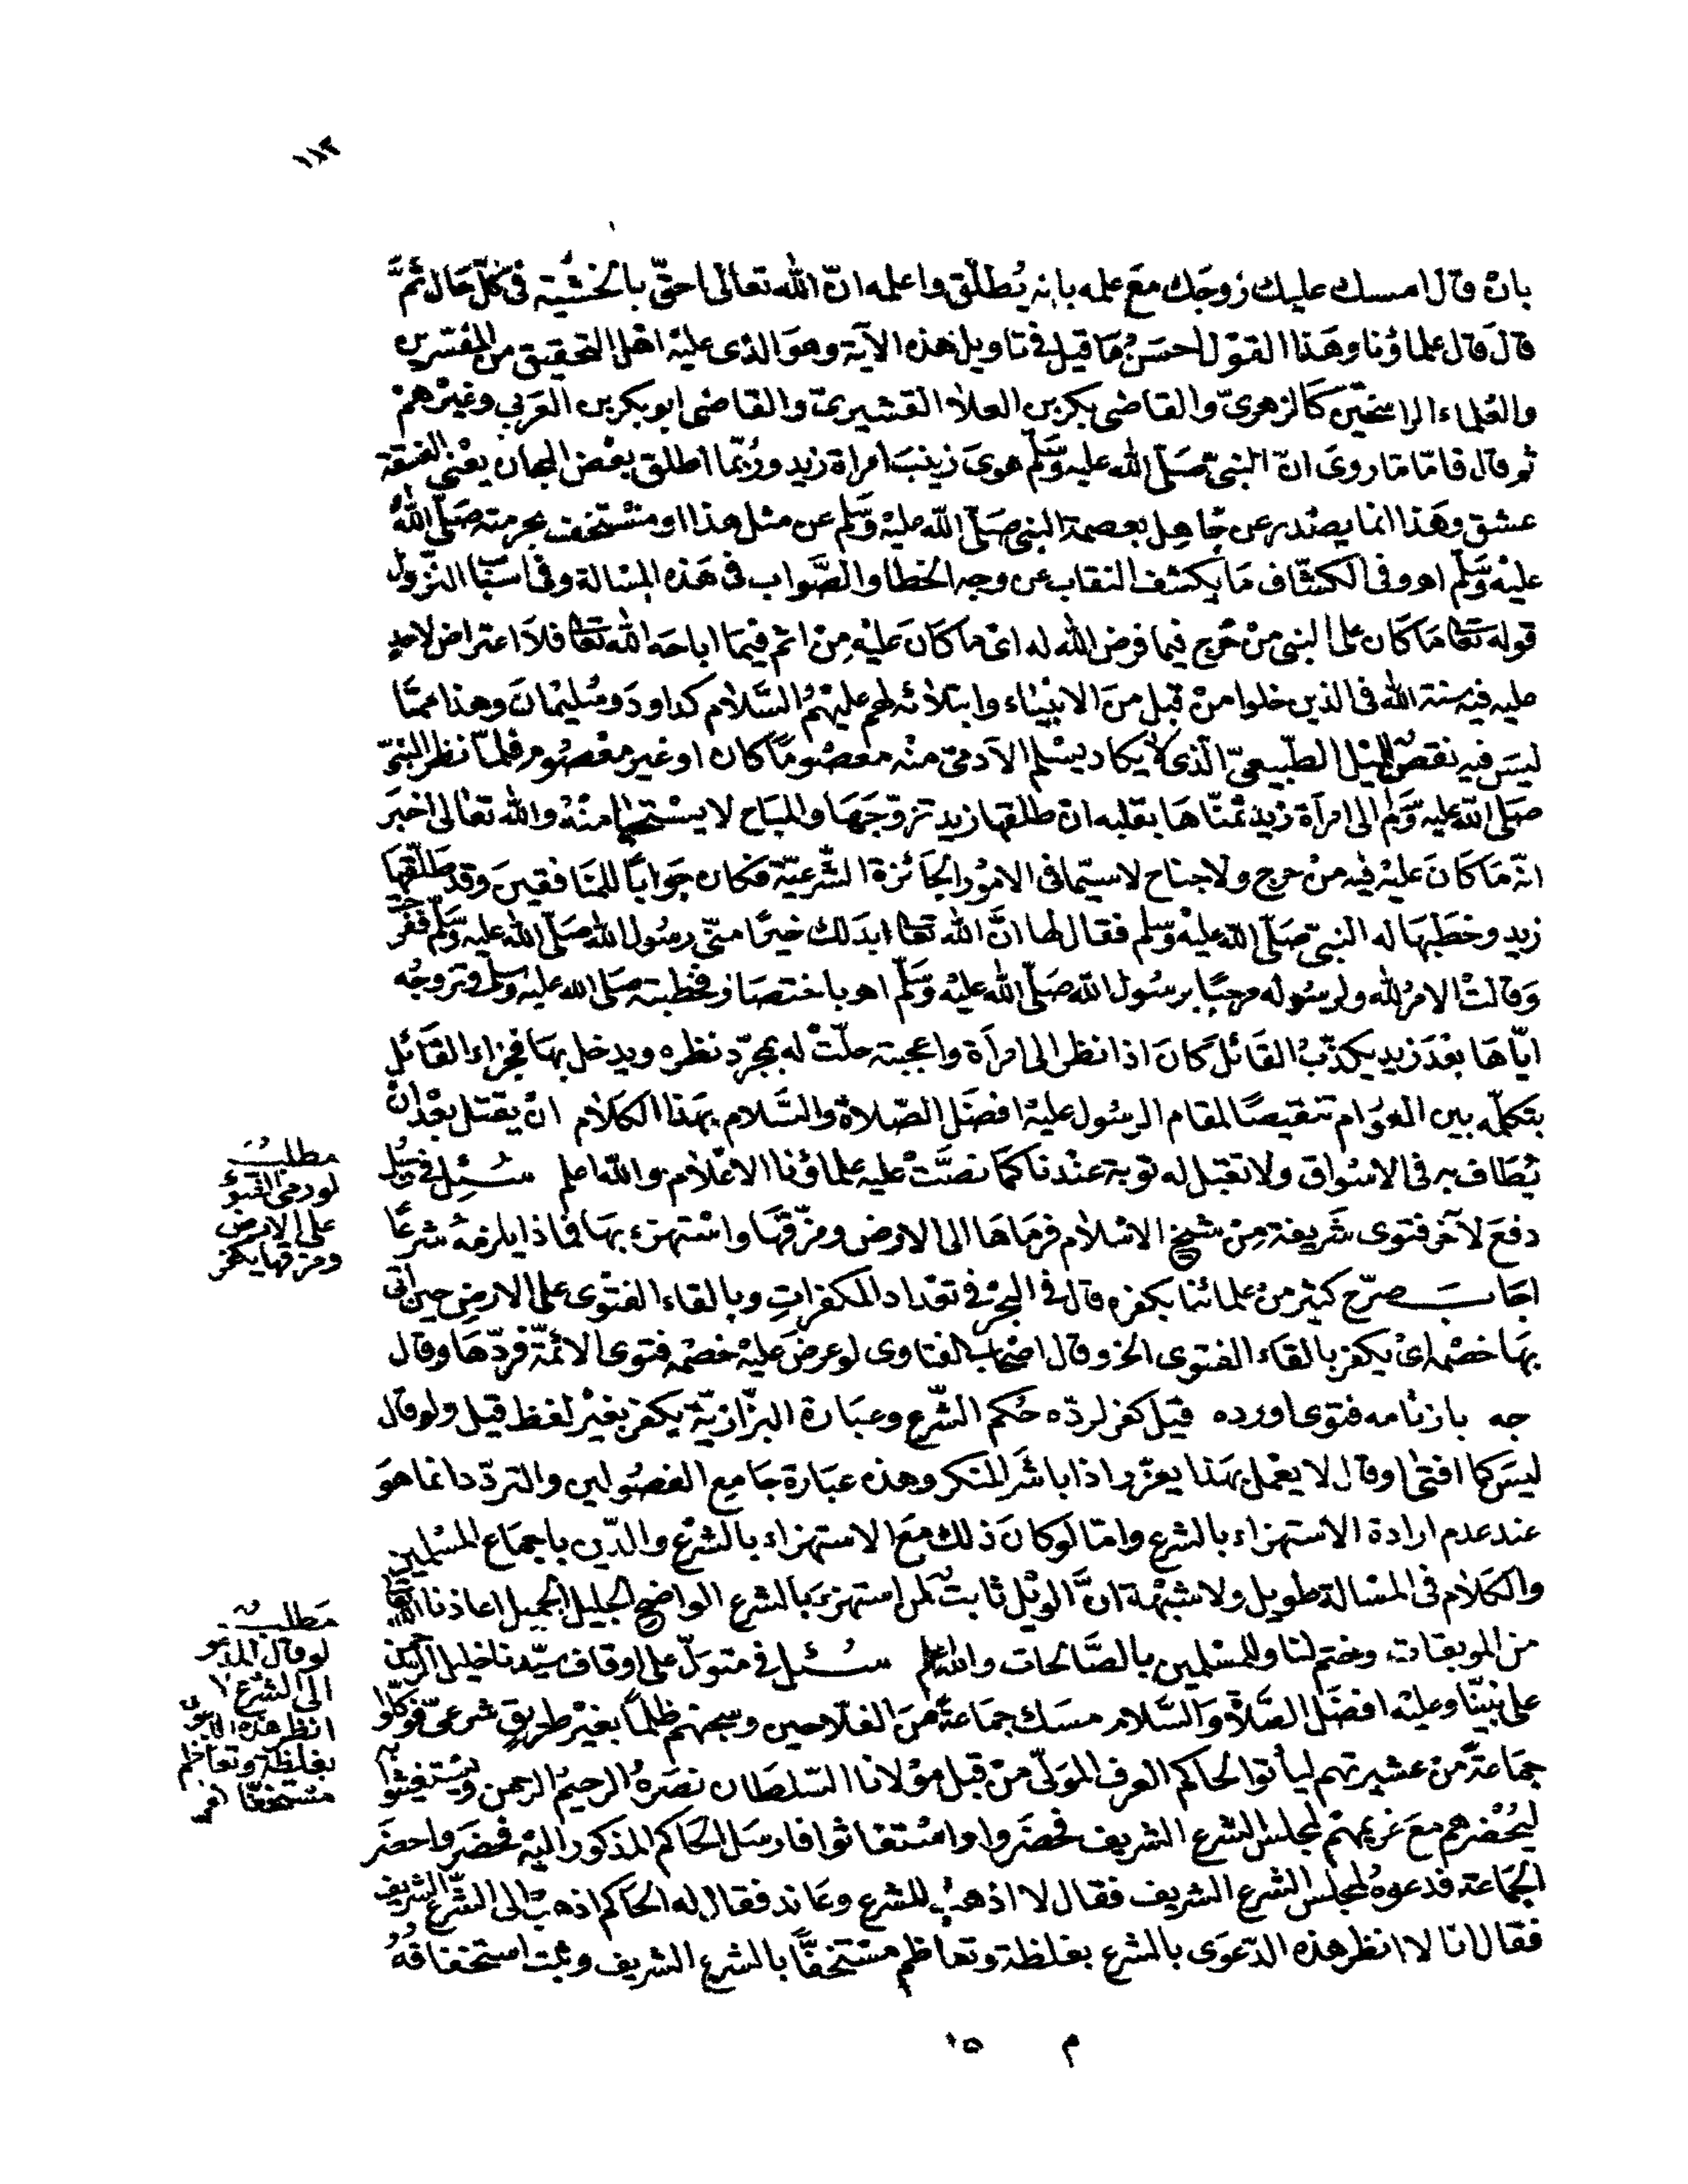 ١١٣
بان قال امسك عليك زوجك مع علمه بانه يُطلّق واعلمه انّ الله تعالى احقّ بالخشية فى كلّ حال ثمّ
قال قال علماؤنا وهذا القول احسن ما قيل فى تاويل هذه الآية وهو الذى عليه اهل التحقيق من المفسرين
والعلماء الراسخين كالزهرىّ والقاضى بكر بن العلاء القشيرى والقاضى ابو بكر بن العربى وغيرهم
ثم قال فامّا ما روى انّ النبىّ صلّى الله عليه وسلّم هوى زينب امراة زيد وربّما اطلق بعض المجان يعنى الفسقة
عشق وهذا انما يصدر عن جاهل بعصمة النبى صلّى الله عليه وسلّم عن مثل هذا او مستخف بحرمته صلّى الله
عليه وسلّم اهو وفى الكشّاف ما يكشف النقاب عن وجه الخطا والصّواب فى هذه المسالة وفى اسباب النزول
قوله تعا ما كان على النبى من حرج فيما فرض الله له اى ما كان عليه من اثم فيما اباحه الله تعا فلا اعتراض لاحد
عليه فيه سنة الله فى الذين خلوا من قبل من الانبياء وابتلائه لهم عليهم السّلام كداود وسليمان وهذا ممّا
ليس فيه نقص للميل الطّبيعىّ الّذى لا يكاد يسلم الآدمىّ منه معصوما كان او غير معصوم فلمّا نظر النبىّ
صلى الله عليه وسلم الى امرأة زيد تمنّاها بقلبه ان طلقها زيد تزوّجها والمباح لا يستحيا منه والله تعالى اخبر
انّه ما كان عليه فيه من حرج ولا جناح لا سيّما فى الامور الجائزة الشّرعيّة فكان جوابا للمنافقين وقد طلّقها
زيد وخطبها له النبىّ صلّى الله عليه وسلم فقال لها انّ الله تعا ابدلك خيرا منّى رسول الله صلّى الله عليه وسلّم ففرحت
وقالت الامر لله ولرسوله مرحبا برسول الله صلّى الله عليه وسلّم اهو باختصار فخطبته صلى الله عليه وسلم وتزوجه
ايّاها بعد زيد يكذّب القائل كان اذا نظر الى امرأة واعجبته حلّت له بمجرّد نظره ويدخل بها فجزاء القائل
بتكلّمه بين العوام تنقيصا لمقام الرسول عليه افضل الصّلاة والسّلام بهذا الكلام ان يقتل بعد ان
يُطاف به فى الاسواق ولا تقبل له توبة عندنا كما نصّت عليه علماؤنا الاعلام والله اعلم سُئِل فى رجل
دفع لآخر فتوى شريفة من شيخ الاسلام فرماها الى الارض ومزّقها واستهزء بها فماذا يلزمه شرعا
اجاب صرّح كثير من علمائنا بكفره قال فى البحر فى تعداد المكفرات وبالقاء الفتوى على الارض حين اتى
بها خصمه اى يكفر بالقاء الفتوى الخ وقال اصحاب الفتاوى لو عرض عليه خصمه فتوى الائمّة فردّها وقال
جه بازنامه فتوى اورده قيل كفر لردّه حكم الشّرع وعبارة البزّازيّة يكفر بغير لفظ قيل ولو قال
ليس كما افتى او قال لا يعمل بهذا يعزّر اذا باشر المنكر وهذه عبارة جامع الفصولين والتردّد انما هو
عند عدم ارادة الاستهزاء بالشرع وامّا لو كان ذلك مع الاستهزاء بالشّرع والدّين باجماع المسلمين
والكلام فى المسالة طويل ولا شبهة انّ الويل ثابت لمن استهزء بالشرع الواضح الجليل الجميل اعاذنا الله تعا
من الموبقات وختم لنا وللمسلمين بالصّالحات والله اعلم سُئل فى متولّ على اوقاف سيّدنا خليل الرحمن
على نبيّنا وعليه افضل الصّلاة والسّلام مسك جماعة من الفلاحين وسجنهم ظلما بغير طريق شرعىّ فوكّلوا
جماعة من عشيرتهم لياتوا لحاكم العرف المولّى من قبل مولانا السّلطان نصره الرحيم الرحمن ويستغيثوا به
ليُحضرهم مع غريمهم لمجلس الشرع الشريف فحضروا واستغاثوا فارسل الحاكم المذكور اليه فحضر واحضر
الجماعة فدعوه لمجلس الشرع الشريف فقال لا اذهب للشرع وعاند فقال له الحاكم اذهب الى الشّرع الشريف
فقال انا لا انظر هذه الدّعوى بالشرع بغلظة وتعاظم مستخفّا بالشرع الشريف وثبت استخفافه
مطلب
لو رمى الفتوى
على الارض
ومزقها يكفر
مطلب
لو قال المدعو
الى الشرع لا
انظر هذه الدعوى
بغلظة وتعاظم
مستخفّا
م ١٥